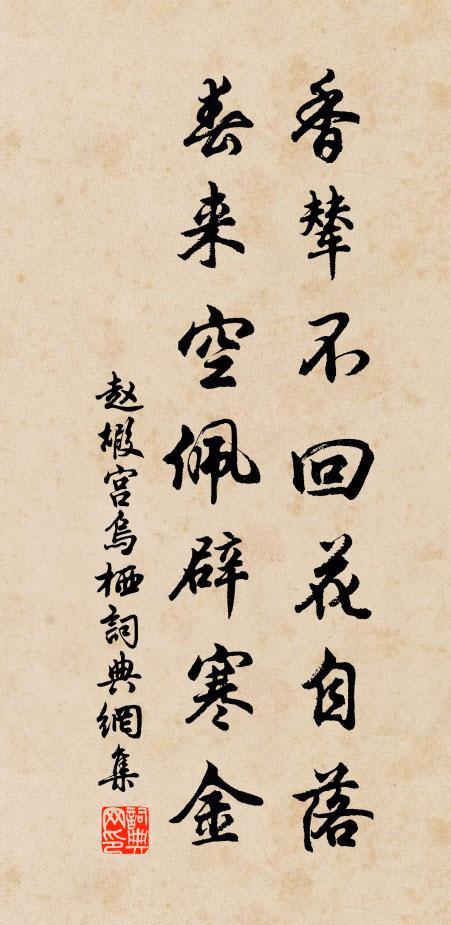 香辇不回花自落
春来空佩辟寒金
赵嘏宫乌栖詞典網集
詞典网印